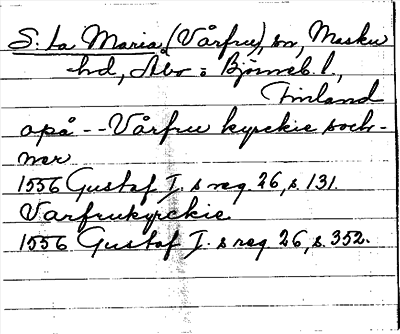 S:ta Maria (Vårfru), sn, Masku
hd, Åbo o Björneb. l.,
Finland
opå -- Vårfru kyrckie soch-
ner
1556 Gustaf I. s reg. 26, s. 131.
Varfrukyrckie
1556 Gustaf I. s reg 26, s. 352.